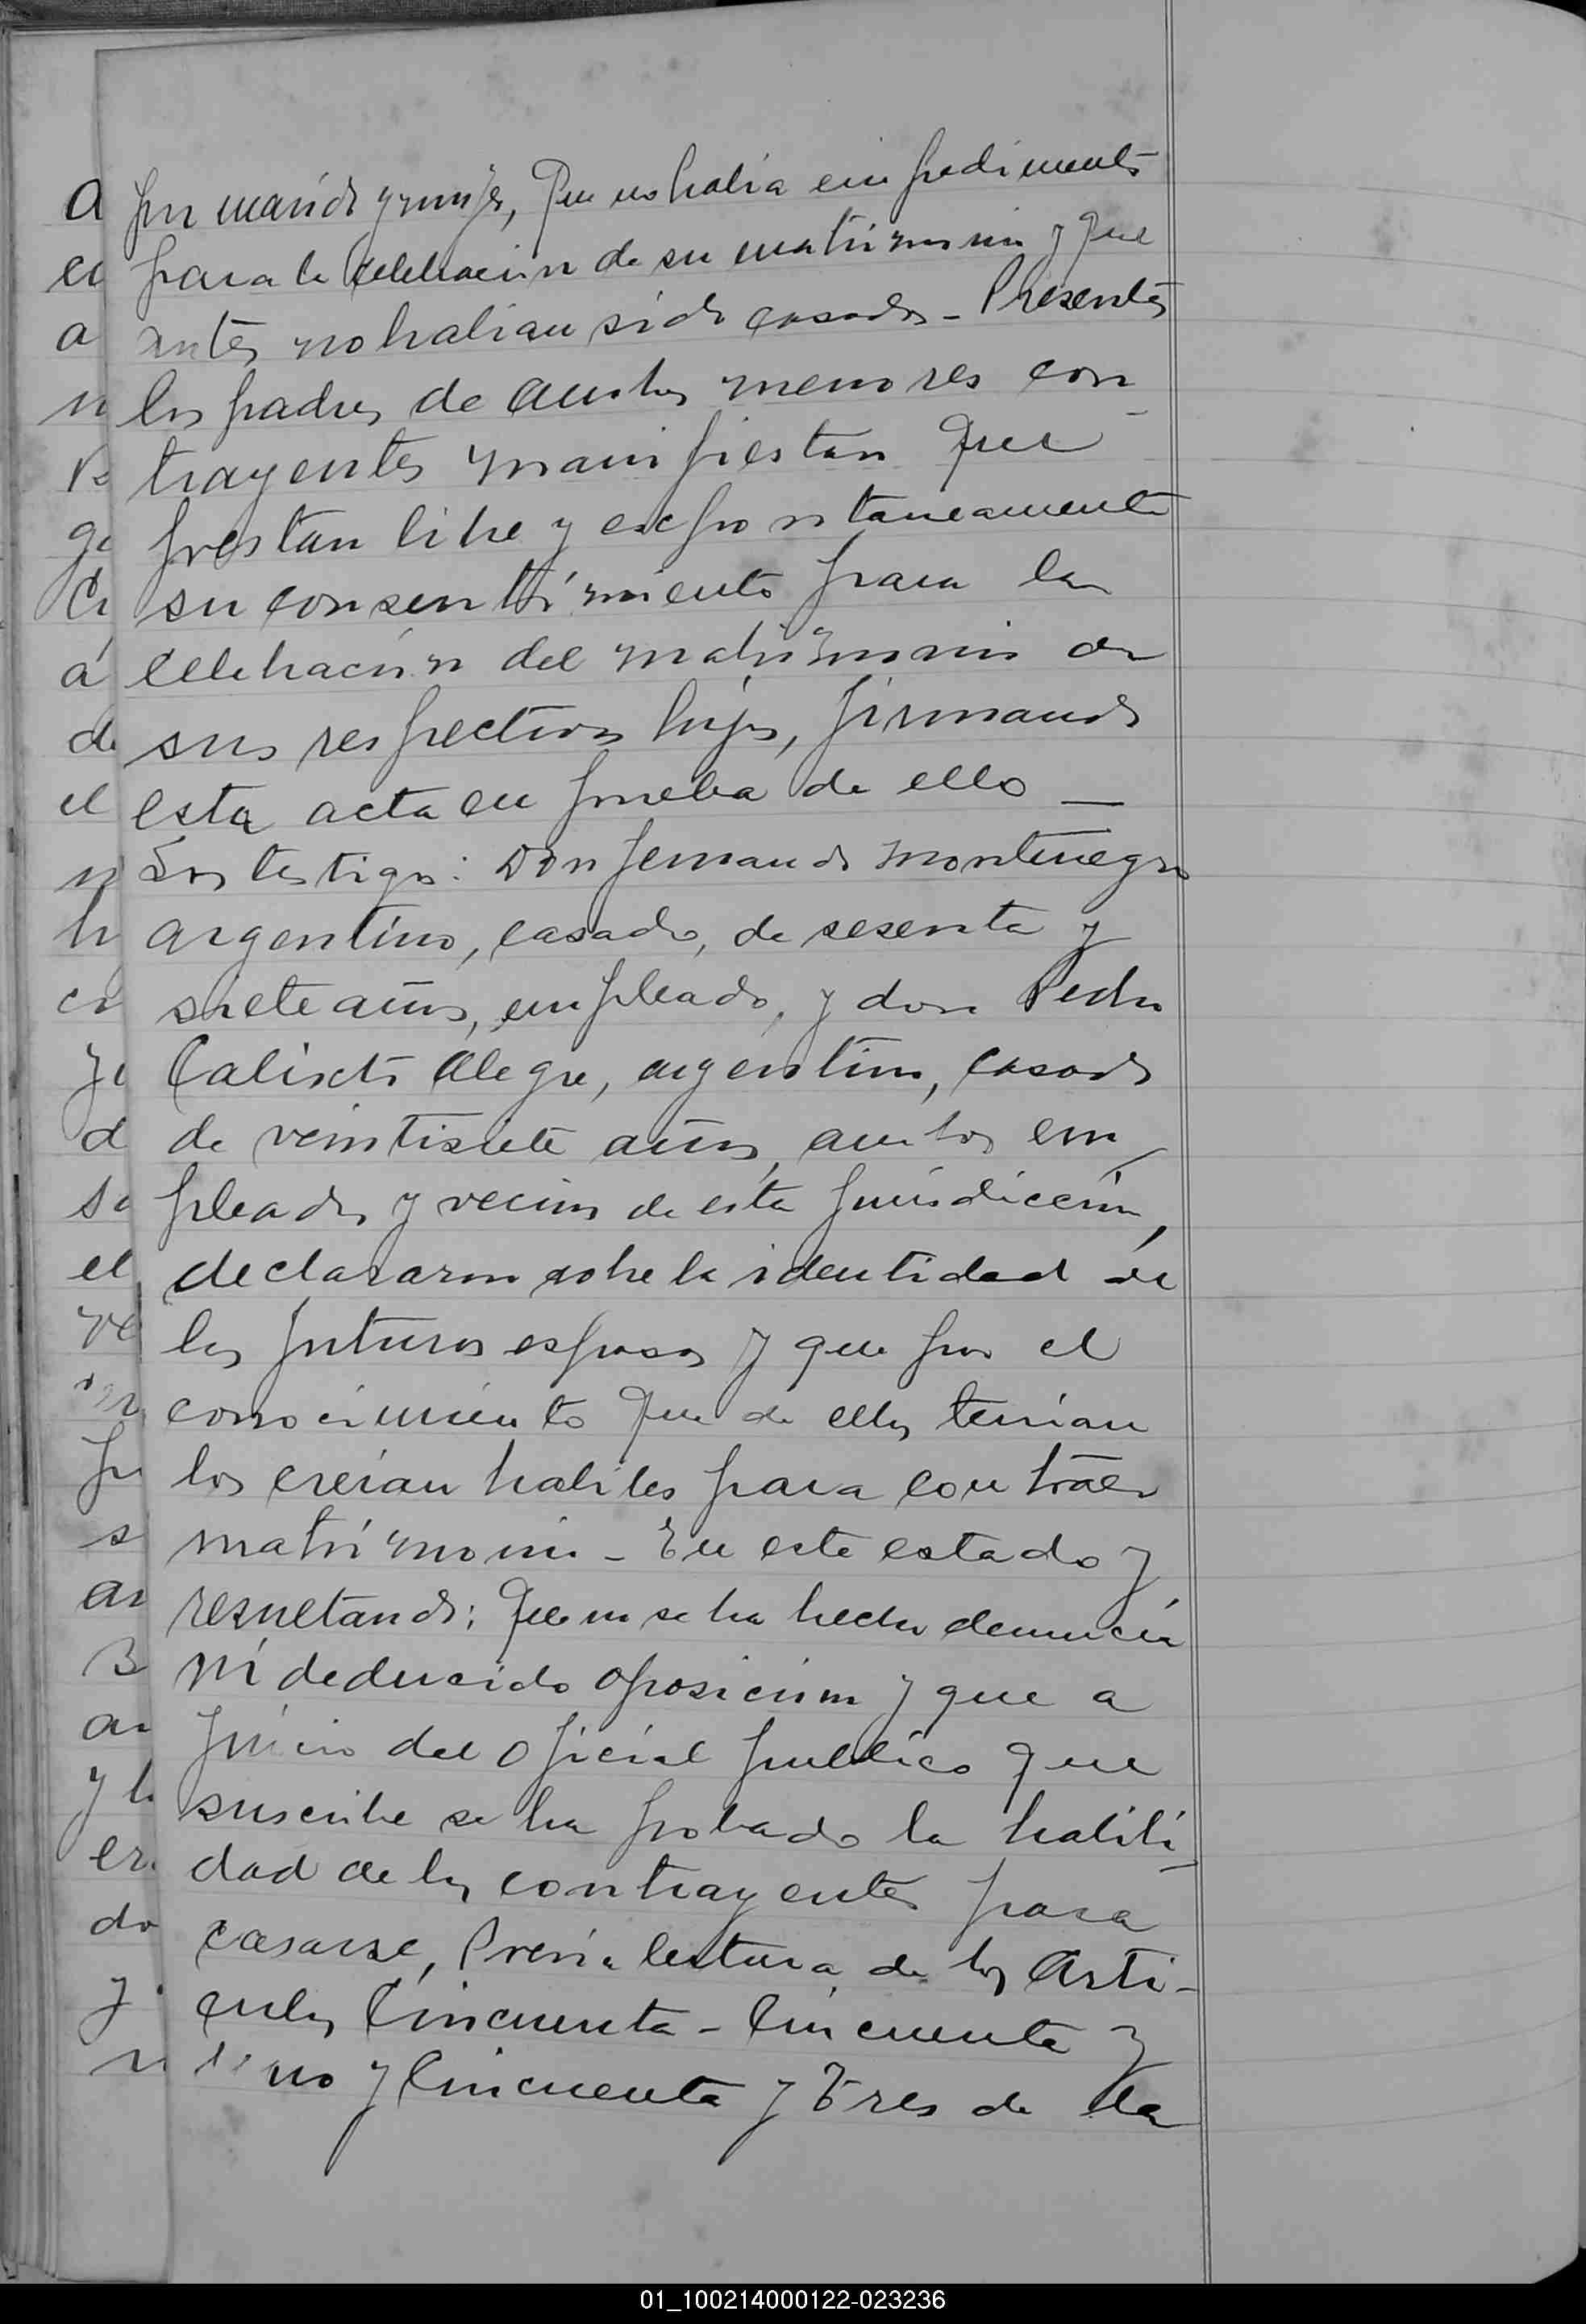 por marido y mujer, Que no habia empedimento
para la celebracion de su matrimonio y que
antes no habian sido casados - Presentes
los padres de ambos menores con-
trayentes manifiestan que
prestan libre y expontaneamente
su consentimiento para la
celebración del matrimonio de
sus respectivos hijos, firmando
esta acta en prueba de ello —
Los testigos: Don Fernando Montenegro
argentino, casado, de sesenta y
siete años, empleado, y don Pedro
Calixto Alegre, argentino, casado
de veintisiete años, ambos em-
pleados y vecinos de esta jurisdicción,
declararon sobre la identidad de
los futuros esposos y que por el
conocimiento que de ellos tenian
los creían habiles para contraer
matrimonio - En este estado y
resultando: Que no se ha hecho denuncia
ni deducido oposicion y que a
juicio del oficial publico que
suscribe se ha probado la habili-
dad de los contrayentes para
casarse, Previa lectura de los Arti-
culos Cincuenta - Cincuenta y
uno y Cincuenta y Tres de la
01_100214000122-023236